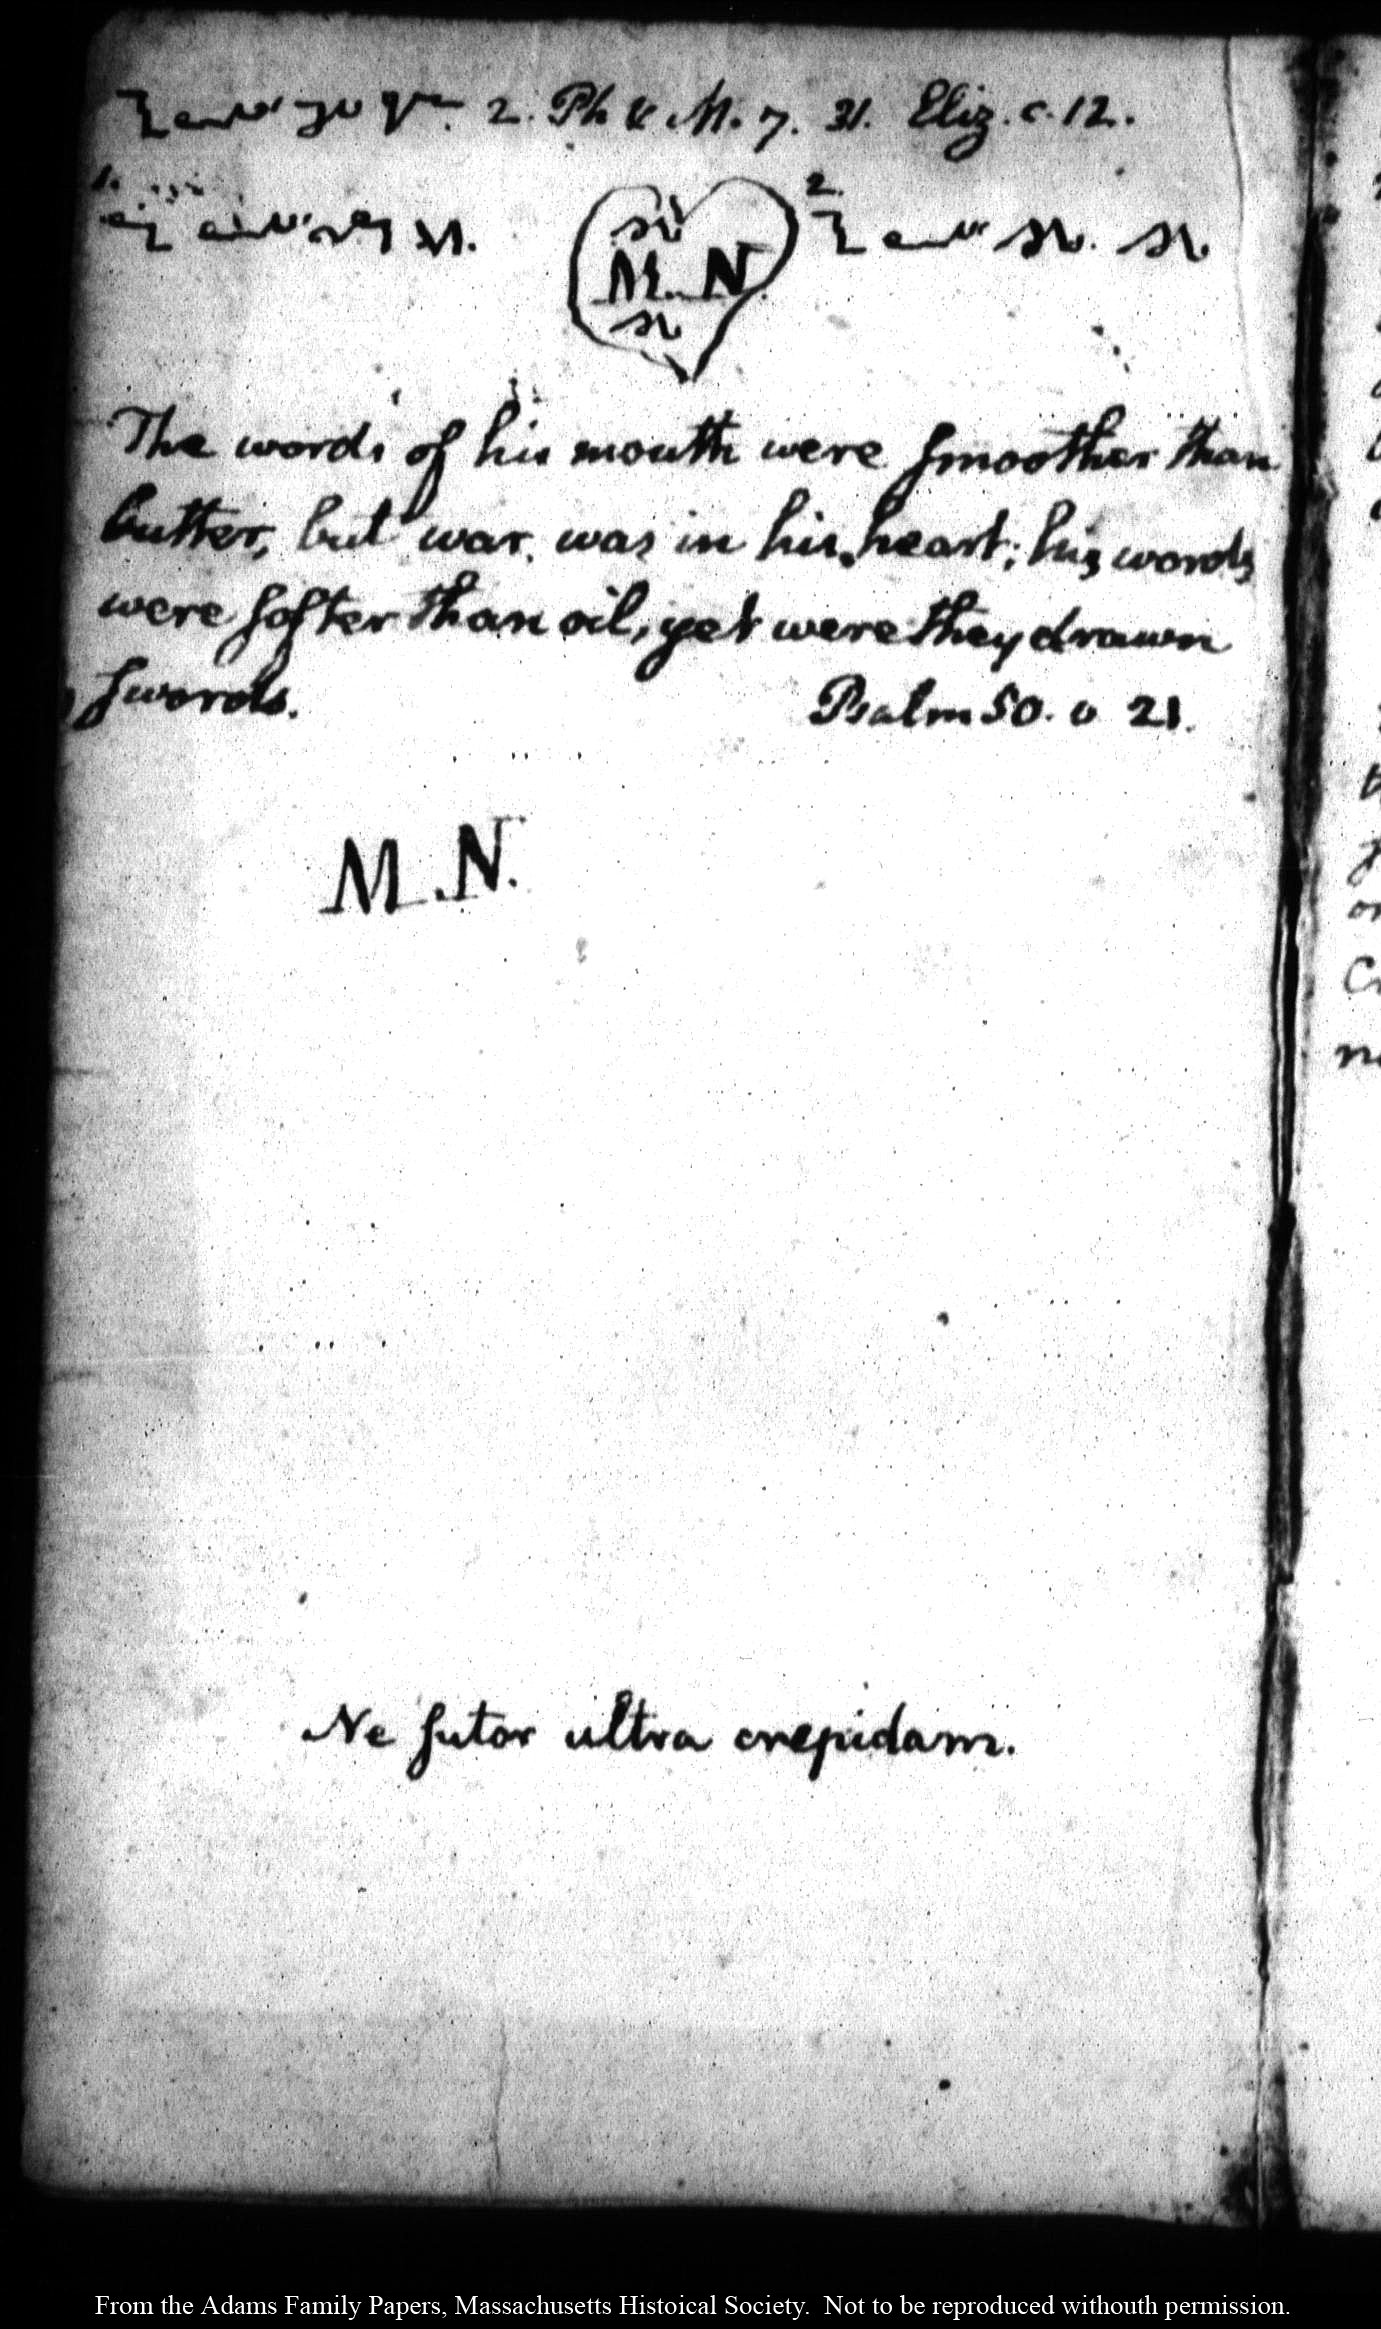 2. Ph & M. 7. 31. Eliz. c. 12.
1.
2.
M. N
The words of his mouth were smoother than
butter, but war was in his heart; his words
were softer than oil, yet were they drawn
swords.
Psalm 50. v 21.
M. N.
Ne sutor ultra crepidam.
From the Adams Family Papers, Massachusetts Histoical Society. Not to be reproduced withouth permission.